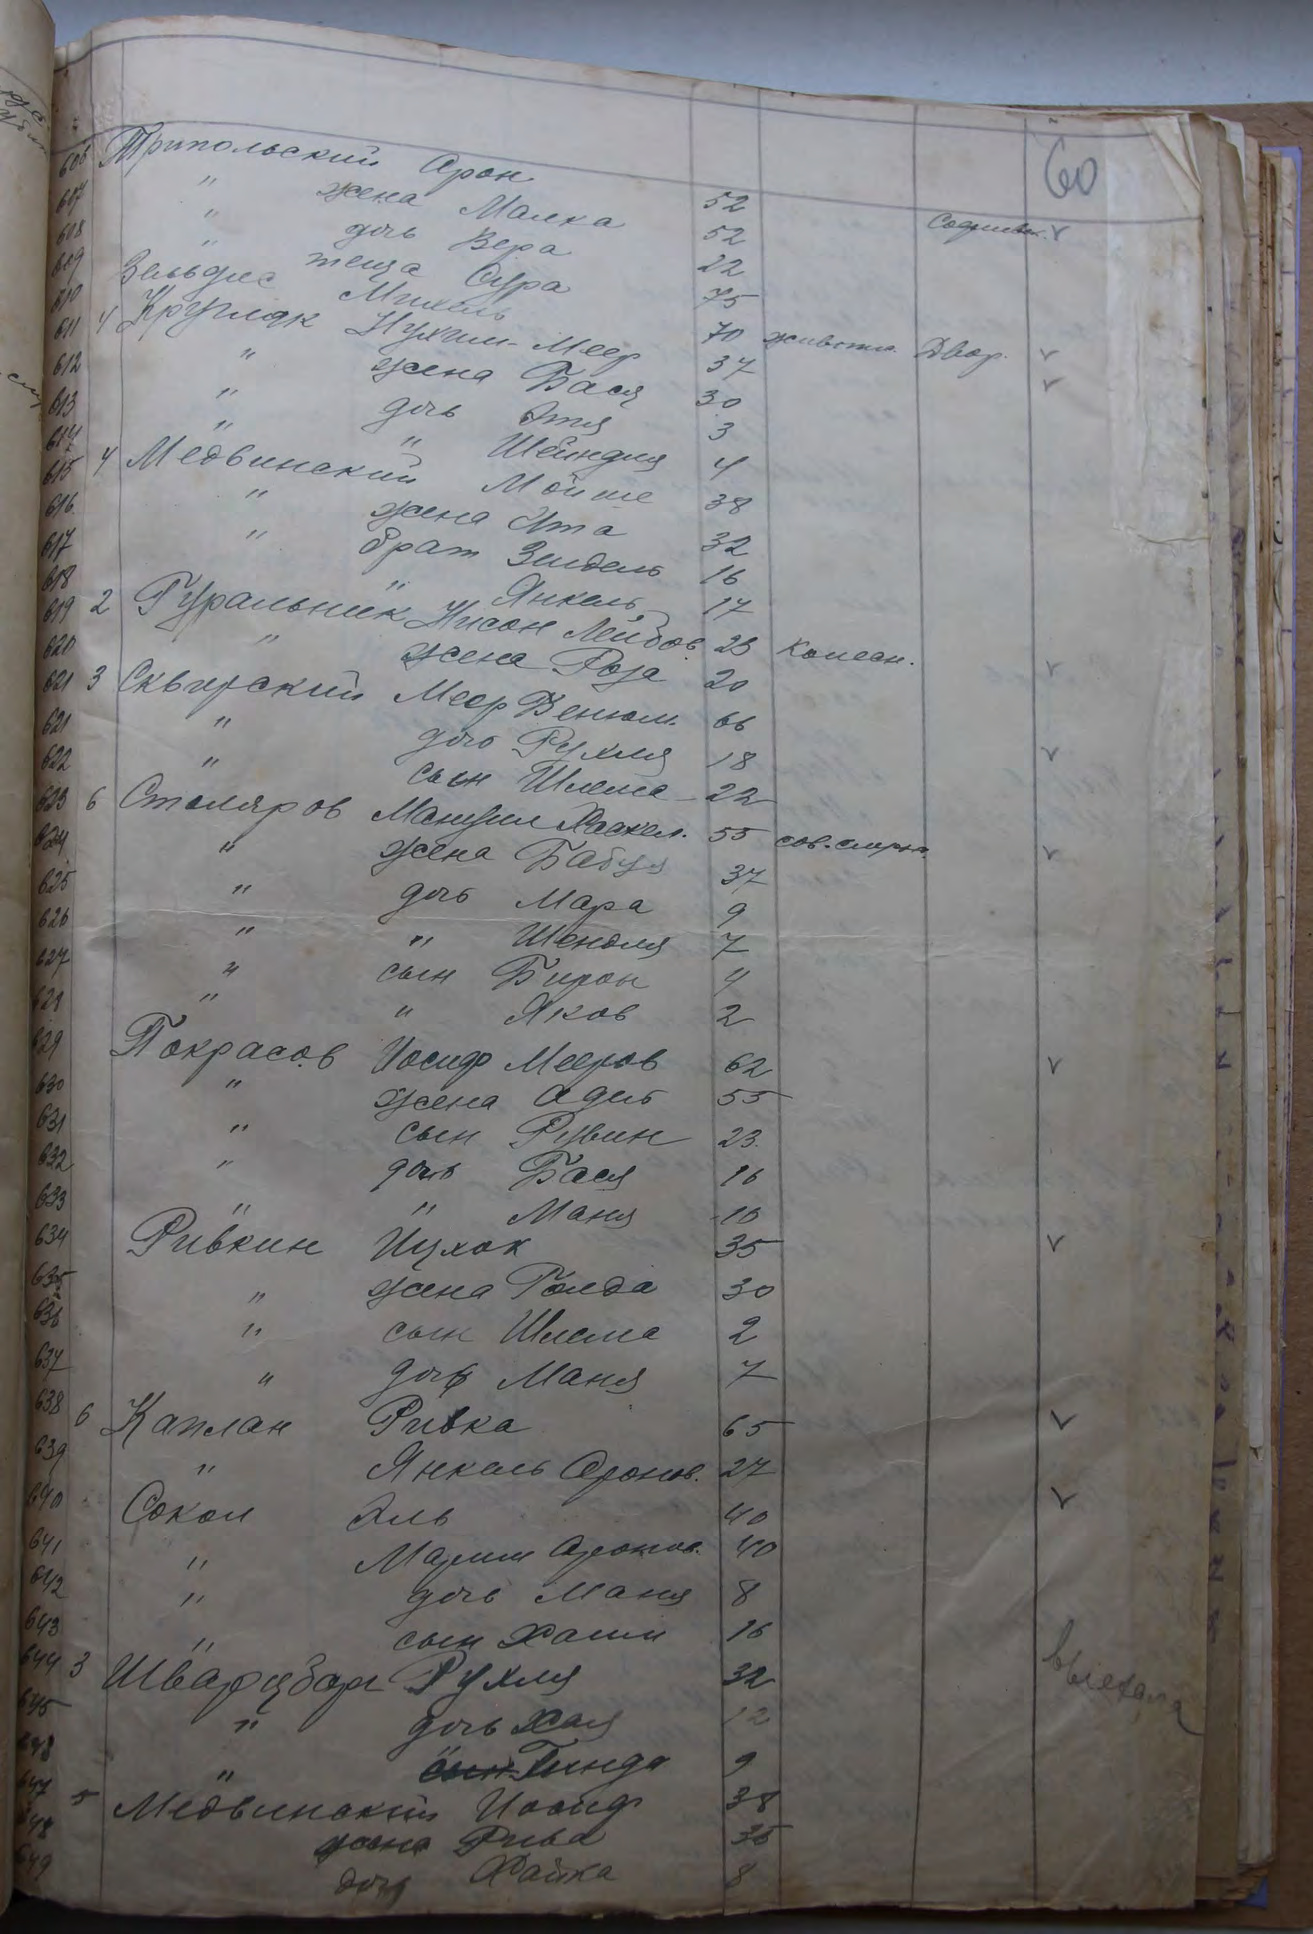 60
606 Трипольский Арон 52
607 " жена Малка 52
608 " дочь Вера 22
609 " теща Сура 75
610 Зельдис Михель 70 Двор. v
611 4 Кругляк Нухим-Меер 37 v
612 " жена Бася 30
613 " дочь Этя 3
614 " " Шейндля 4
615 4 Медвинский Мойше 38
616 " жена Ита 32
617 " брат Зейдель 16
618 " Янкель 17
619 2 Гуральник Нисон Лейбов 23
620 " жена Роза 20 v
621 3 Сквирский Меер Венюм. 66
621 " дочь Рухля 18 v
622 " сын Шлема 22
623 6 Столяров Хаскел. 55
624 " жена Бабуя 37 v
625 " дочь Мара 9
626 " " Шендля 7
627 " сын Бирон 4
628 " " Яков 2
629 Покрасов Иосиф Мееров 62 v
630 " жена Адель 55
631 " сын Рувин 23
632 " дочь Бася 16
633 " " Маня 10
634 Ривкин Ицхок 35 v
635 " жена Голда 30
636 " сын Шлема 2
637 " дочь Маня 7
638 6 Каплан Ривка 65 v
639 " Янкель Аронов. 27
640 Сокол Эль 40 v
641 " Аронов. 40
642 " дочь Маня 8
643 " сын Хаим 16
644 3 Шварцбарг Рухля 32 выехала
645 " дочь Хая 12
" " Гинда 9
647 5 Медвинский Иосиф 38
648 жена Рива 35
649 дочь Хайка 8